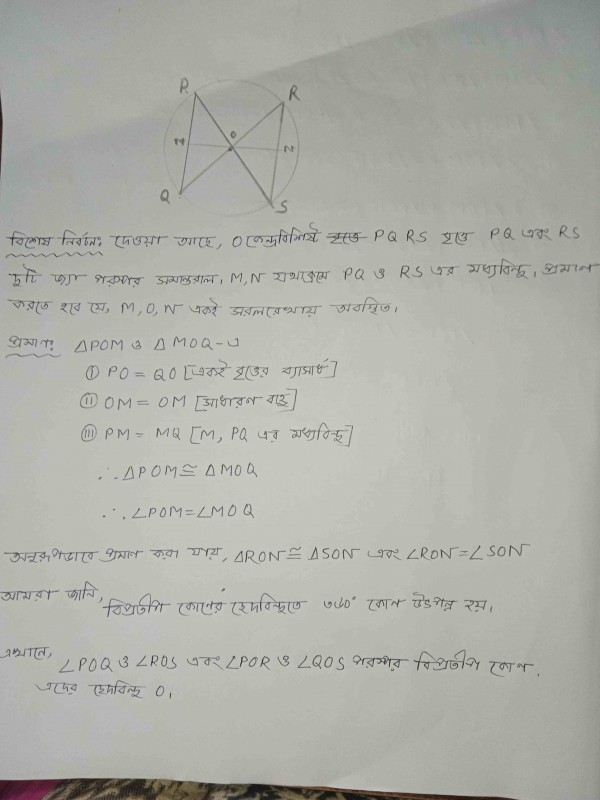 P
R
O
M
N
Q
S
বিশেষ নির্বচনঃ দেওয়া আছে, O কেন্দ্রবিশিষ্ট বৃত্তে PQ RS বৃত্তে PQ এবং RS
দুটি জ্যা পরস্পর সমান্তরাল। M, N যথাক্রমে PQ ও RS এর মধ্যবিন্দু। প্রমাণ
করতে হবে যে, M, O, N একই সরলরেখায় অবস্থিত।
প্রমাণঃ ΔPOM ও ΔMOQ-এ
(i) PO = QO [একই বৃত্তের ব্যাসার্ধ]
(ii) OM = OM [সাধারণ বাহু]
(iii) PM = MQ [M, PQ এর মধ্যবিন্দু]
∴ ΔPOM ≅ ΔMOQ
∴ ∠POM = ∠MOQ
অনুরূপভাবে প্রমাণ করা যায়, ΔRON ≅ ΔSON এবং ∠RON = ∠SON
আমরা জানি,
বিপ্রতীপ কোণের ছেদবিন্দুতে ৩৬০° কোণ উৎপন্ন হয়।
এখানে,
∠POQ ও ∠ROS এবং ∠POR ও ∠QOS পরস্পর বিপ্রতীপ কোণ,
এদের ছেদবিন্দু O,